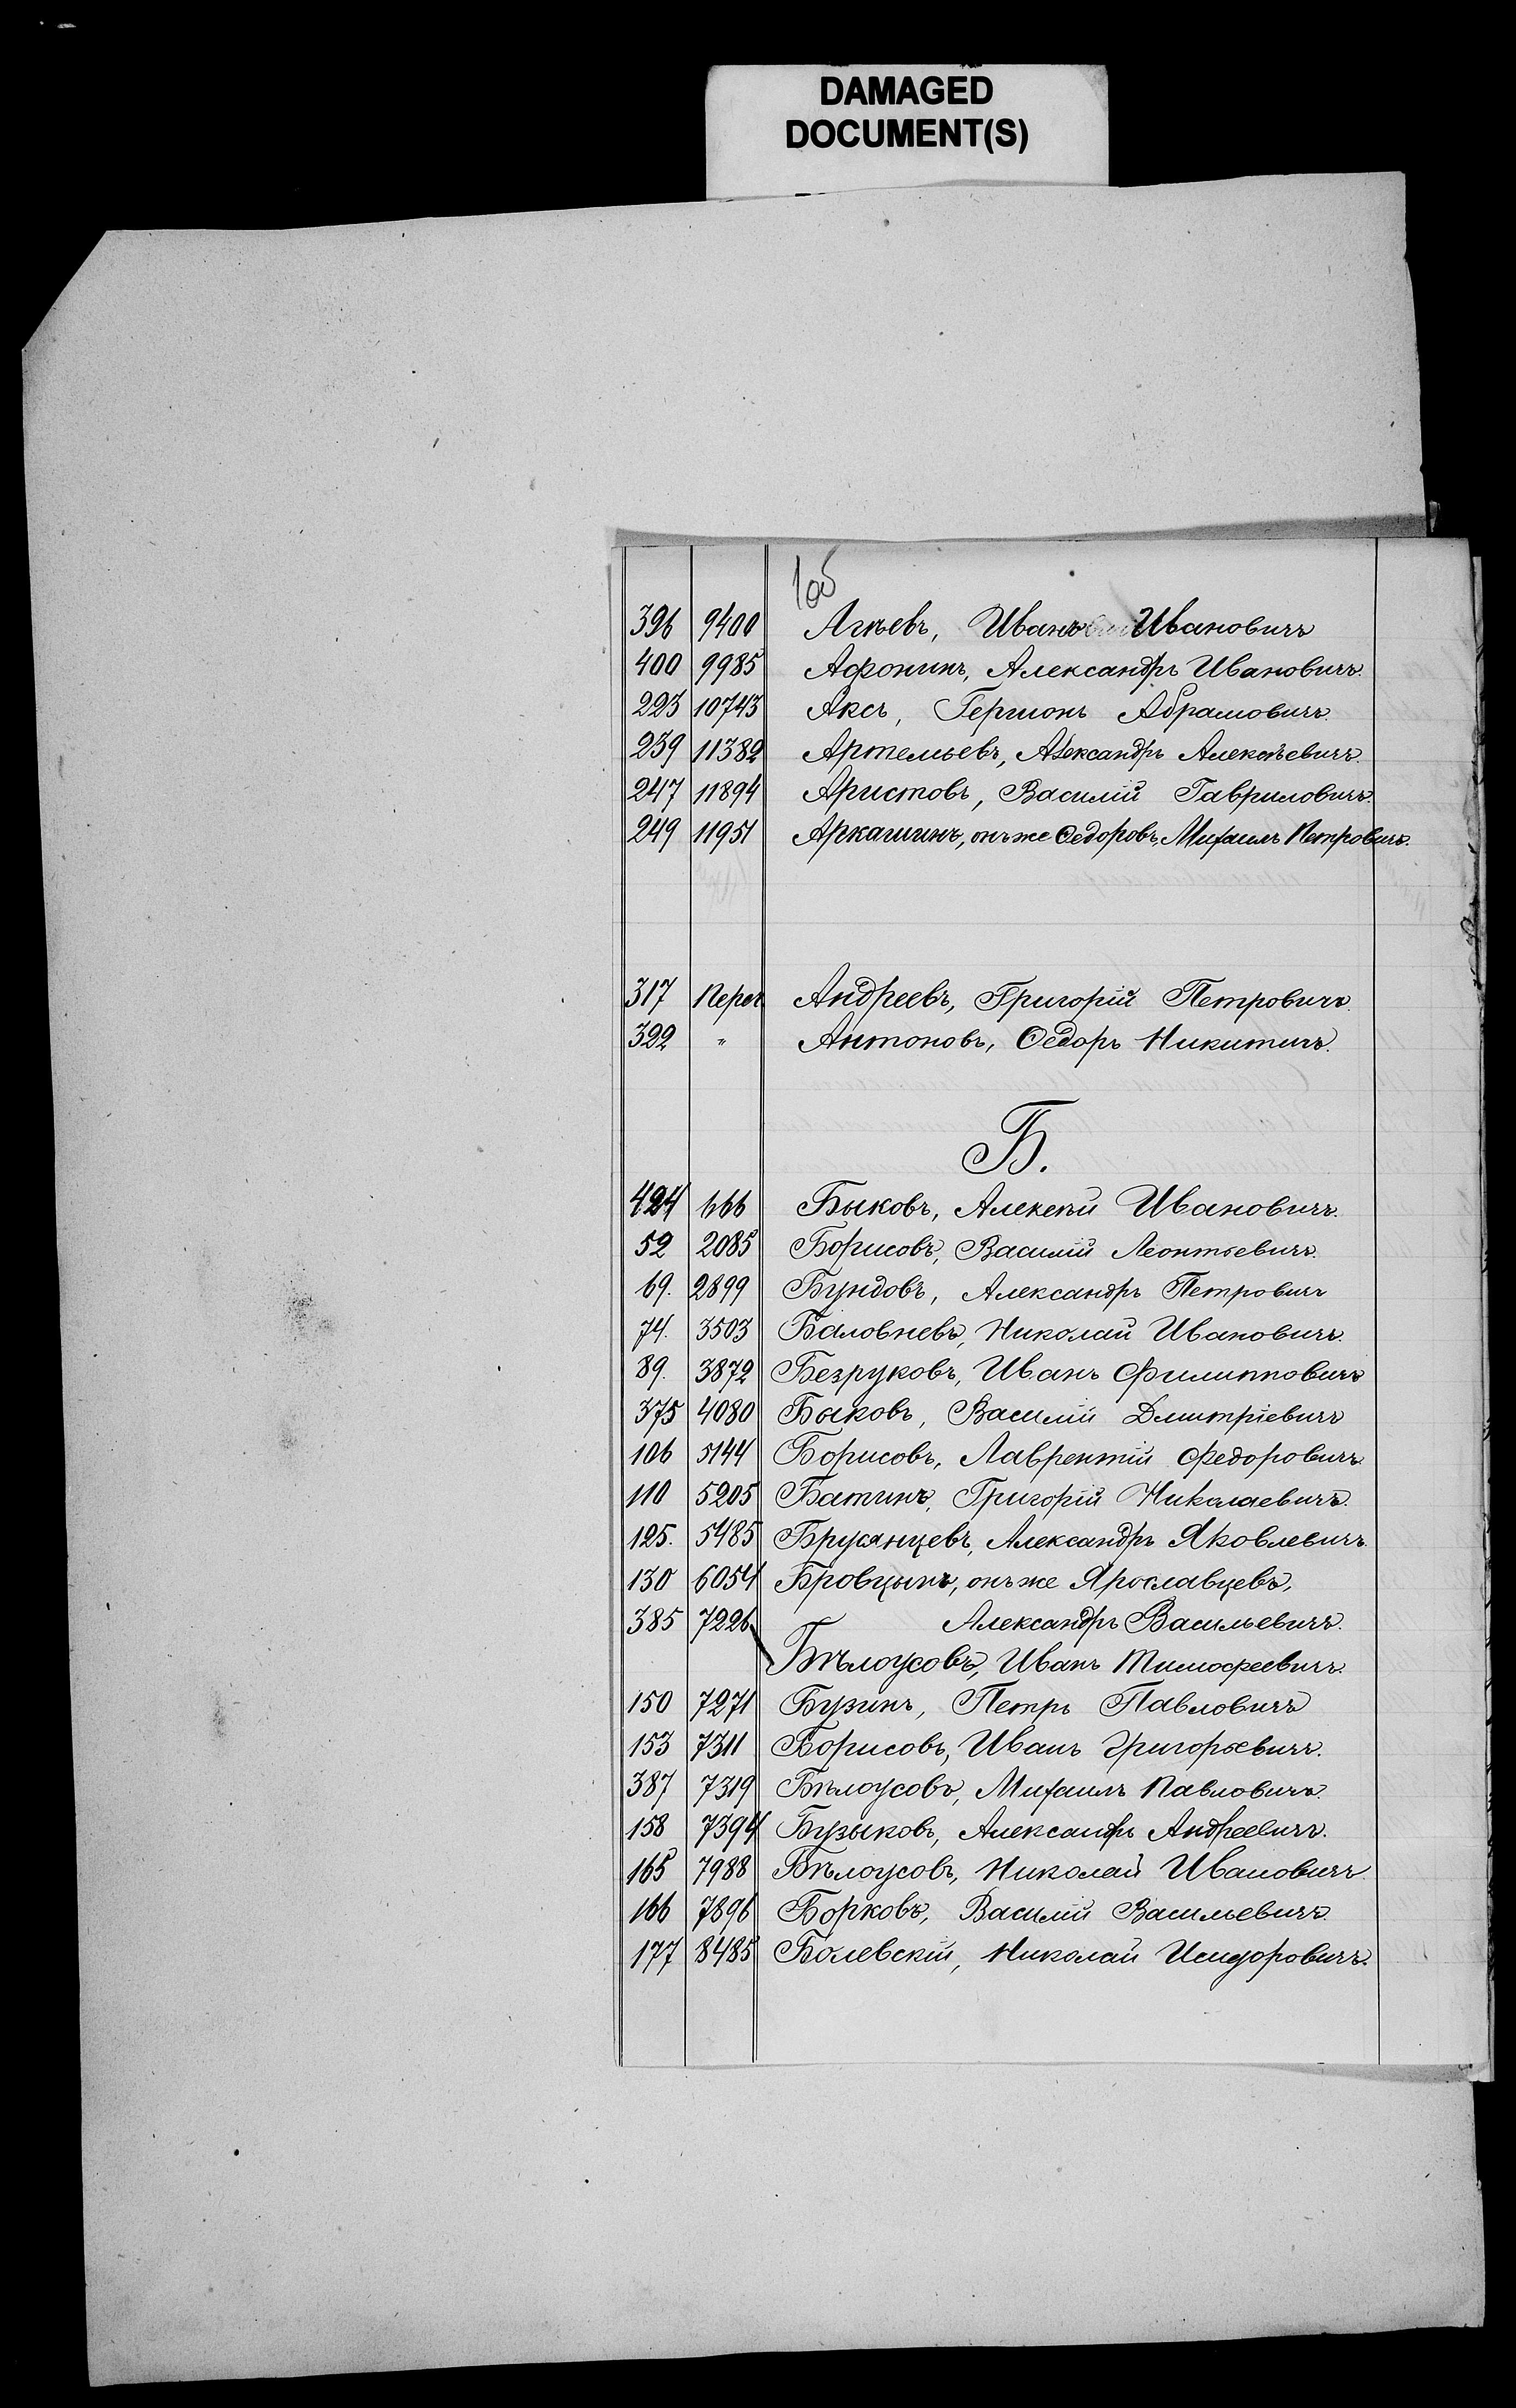 DAMAGED
DOCUMENT(S)
1об
396 9400 Агѣевъ, Иванъ Ивановичъ
400 9985 Афонинъ, Александръ Ивановичъ.
223 10743 Аксъ, Гершонъ Абрамовичъ.
239 11382 Артемьевъ, Александръ Алексѣевичъ.
247 11894 Аристовъ, Василій Гавриловичъ.
249 11951 Аркашинъ, онъ же Ѳедоровъ, Михаилъ Петровичъ.
317 Перех Андреевъ, Григорій Петровичъ.
322 " Антоновъ, Ѳедоръ Никитичъ.
Б.
424 666 Быковъ, Алексѣй Ивановичъ.
52 2085 Борисовъ, Василій Леонтьевичъ.
69. 2899 Бундовъ, Александръ Петровичъ
74. 3503 Баловневъ, Николай Ивановичъ.
89. 3872 Безруковъ, Иванъ Филипповичъ
375 4080 Быковъ, Василій Дмитріевичъ
106 5144 Борисовъ, Лаврентій Федоровичъ
110 5205 Батинъ, Григорій Николаевичъ.
125. 5485 Брусянцевъ, Александръ Яковлевичъ.
130 6054 Бровцынъ, онъ же Ярославцевъ,
Александръ Васильевичъ.
385 7226 Бѣлоусовъ, Иванъ Тимофеевичъ.
150 7271 Бузинъ, Петръ Павловичъ
153 7311 Борисовъ, Иванъ Григорьевичъ.
387 7319 Бѣлоусовъ, Михаилъ Павловичъ.
158 7394 Бузыковъ, Александръ Андреевичъ.
165 7988 Бѣлоусовъ, Николай Ивановичъ
166 7896 Борковъ, Василій Васильевичъ.
177 8485 Болевскій, Николай Исидоровичъ.